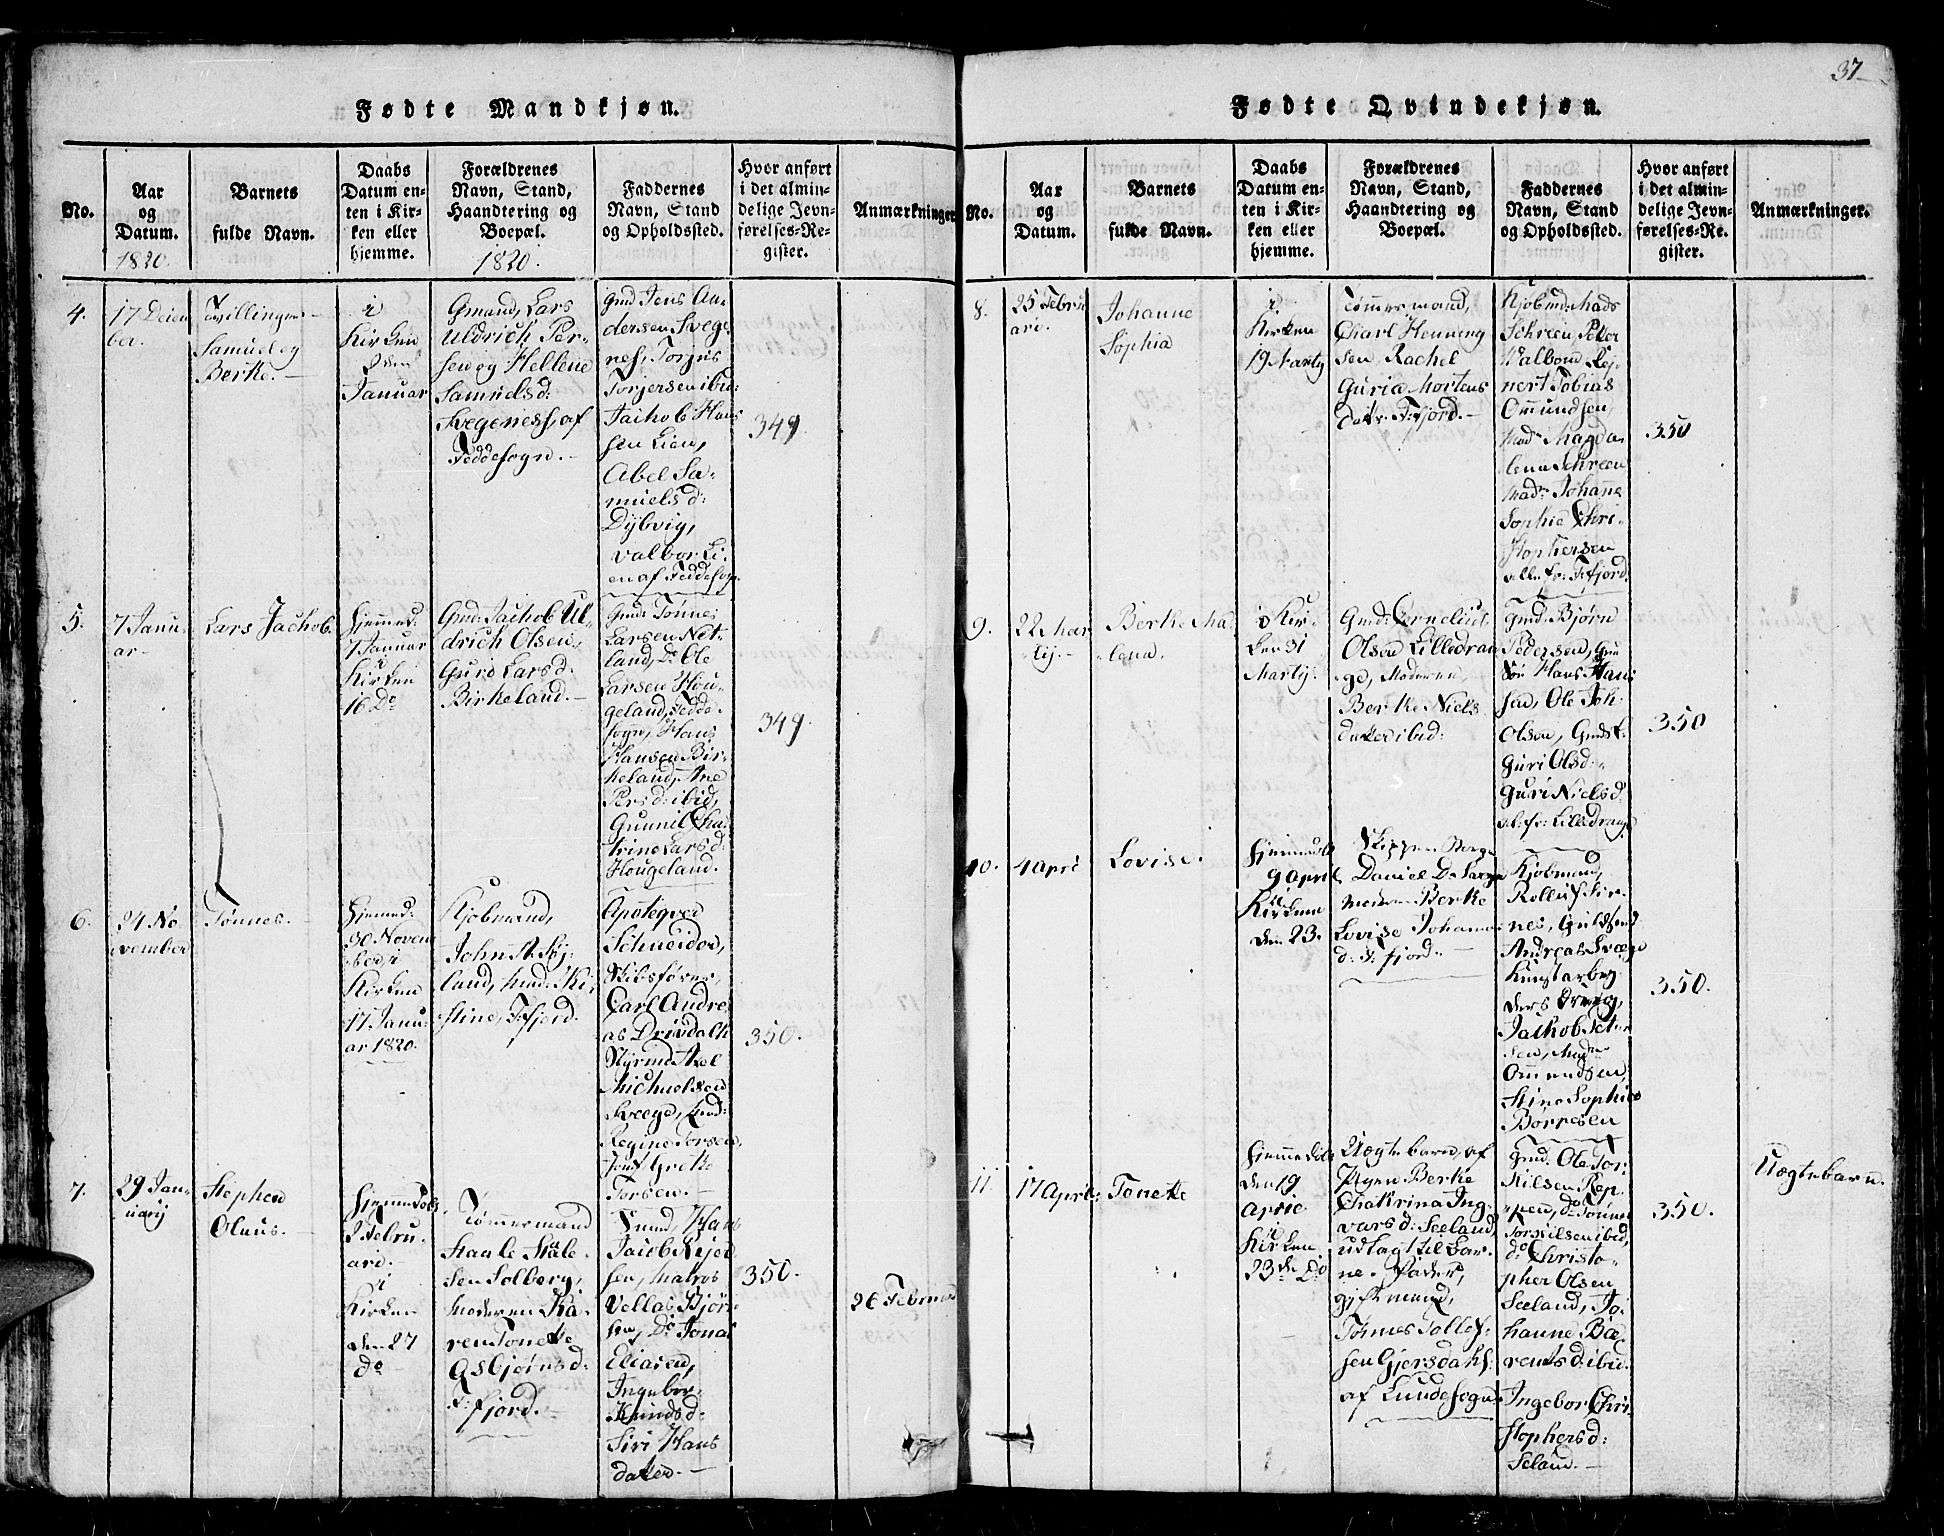 Fødte Mandkjøn.
No.
Aar
og
Datum.
1820.
Barnets
fulde Navn.
Daabs
Datum en-
ten i Kir-
ken eller
hjemme.
Forældrenes
Navn, Stand,
Haandtering og
Boepæl.
1820.
Faddernes
Navn, Stand
og Opholdssted.
Hvor anført
i det almin-
delige Jevn-
førelses-Re-
gister.
Anmærkninger.
4.
17 Decem
ber.
Tvillinger
Samuel og
Berte.
i
Kirken
2den
Januar
Gmand, Lars
Uldrich Per-
sen og Hellene
Samuelsd:
Svegenes, af
Feddesogn.
Gmd Jens An-
dersen Svege
nes, Torjus
Torjersen ibid:
Jachob Hans
sen Lien,
Abel Sa-
muelsd:
Dybvig,
Valbor Li-
en af Feddesogn
349
5.
7 Janu-
ar
Lars Jachob.
Hjemmed:
7 Januar
i
Kirken
16 Do
Gmd: Jachob Ul-
drich Olsen,
Guro Larsd:
Birkeland.
Gmd: Tønnes
Larsen Net-
land, Do Ole
Larsen Hou-
geland, Fedde-
sogn, Hans
Hansen Bir-
keland, Ane
Persd: ibid,
Gunnil Cha-
trine Larsd:
Hougeland.
349.
6.
24 No
vember
Tønnes.
Hjemmed:
30 Novem
ber, i
Kirken
17 Janu-
ar 1820.
Kjøbmand,
John St. Høj-
land, Mad: Ki-
stine, F:fjord.
Apoteqver
Schneider,
Skibsfører,
Carl Andre
as Drivdalh
Styrmd Axel
Michaelsen
Svege,
Regine Torsen,
Jomf Grethe
Torsen.
350.
7.
29 Jan-
uarij
Stephen
Olaus.
Hjemmedøbt
2 Febru-
ari.
i
Kirken
den 27
do
Tømmermand
Staale Staale-
sen Solberg,
Moderen Ka-
ren Tonette
Asbjørnsd:
F:fjord.
Svend, Hans
Jacob Rejer
sen, Matros
Vellas Bjørn-
sen, Do Jonas
Eliasen,
Ingebor-
Knudsd:
Siri Hans
dater.
350.
26 Februar
37
Fødte Qvindekjøn.
No.
Aar
og
Datum.
Barnets
fulde Navn.
Daabs
Datum en-
ten i Kir-
ken eller
hjemme.
Forældrenes
Navn, Stand,
Haandtering og
Boepæl.
Faddernes
Navn, Stand
og Opholdssted.
Hvor anført
i det almin-
delige Jevn-
førelses-Re-
gister.
Anmærkninger.
8.
25 Febru
ari.
Johanne
Sophia
i
Kirken
19 Martij
Tømmermand,
Charl Henning
sen, Rachel
Guria Mortens
dater F:fjord.
Kjøbmd: Mads
Schreen, Peter
Valbom, Rej-
nert Tobias
Ommundsen,
Madm Magda-
lena Schreen
Madm: Johanne
Sophie Chri-
stophersen
alle fr: F:fjord.
350
9.
22 Mar
tij.
Berte Ma-
lena.
i Kir-
ken 31
Martij.
Gmd: Cornelius
Olsen Lilledran
ge, Moderen,
Berte Niels
dater ibid:
Gmd: Bjørn
Pedersen, Gm
Sør Hans Han-
sen, Ole Joh
Olsen, Gmdsf:
Guri Olsd:
Guri Nielsd
alle fr: Lilledrange
350
10.
4 April
Lovise.
Hjemmedøbt
9 April
i
Kirken
den 23.
Skipper
Daniel D.
Moderen Berte
Lovise Johannes
d: F:fjord
Kjøbmand,
Rollufs Kir-
nes, Guldsmed
Andreas Svege
Kunstarbej
ders Dreng,
Jachob Peter
sen, Madm
Ommundsen,
Stine Sophie
Børresen
350.
11.
17 April:
Tonette
Hjemmedøbt
den 19
April
i
Kirken
23de Do
Uægtebarn, af
Pigen Berte
Chatrina Ing-
varsd: Seeland,
udlagt til Bar-
ne-Fader,
gift mand,
Tønnes Tollef-
sen Gjersdahl
af Lundesogn
Gmd: Ole Tor-
kilsen Rep-
pen, do Tønnes
Torkilsen ibid,
do Christo-
pher Olsen
Seeland, Jo-
hanne Bæ-
rentsd: ibid.
Ingebor Chri-
stophersd:
Seland.
350.
Uægtebarn.